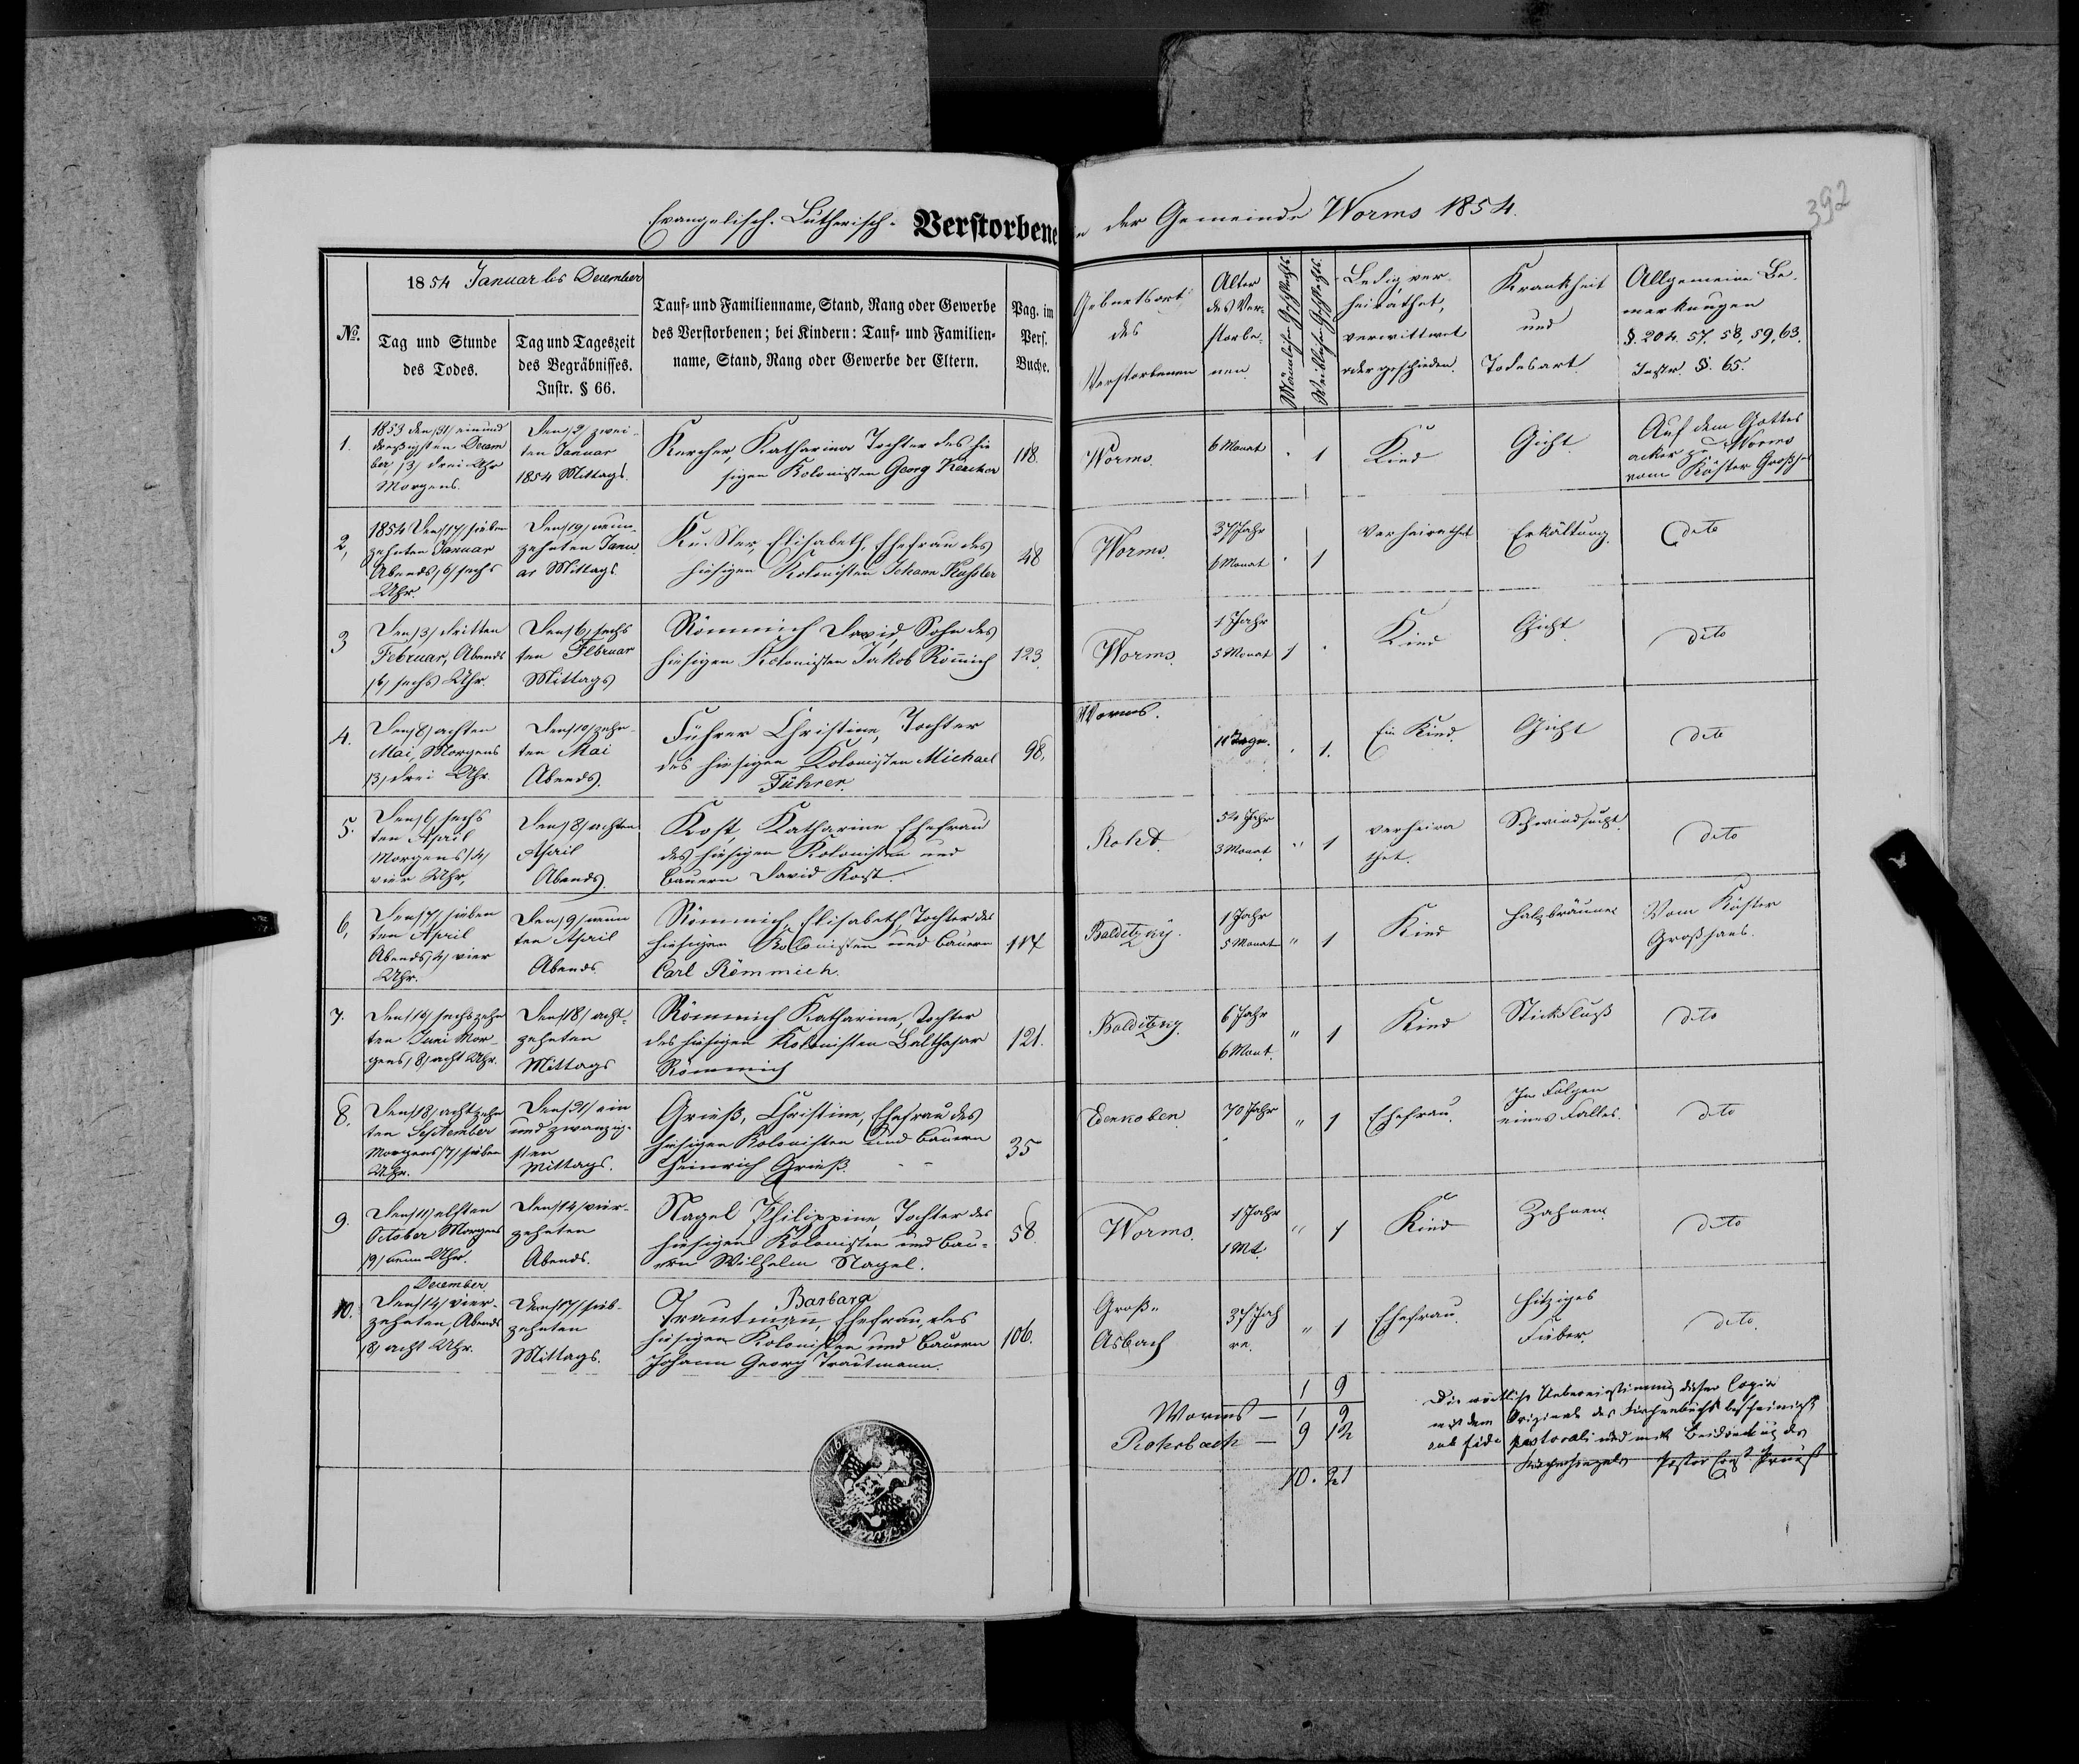 Evangelisch-Lutherisch-Verstorbene der Gemeinde Worms 1854.
392
1854 Januar bis December
№.
Tag und Stunde
des Todes.
Tag und Tageszeit
des Begräbnisses.
Instr. § 66.
Tauf- und Familienname, Stand, Rang oder Gewerbe
des Verstorbenen; bei Kindern: Tauf- und Familien-
name, Stand, Rang oder Gewerbe der Eltern.
Pag. im
Pers.
Buche.
Geburtsort
des
Verstorbenen
Alter
des Ver-
storbe-
nen
Männlichen Geschlechts
Weiblichen Geschlechts
Ledig, ver-
heirathet,
verwittwet
oder geschieden.
Krankheit
und
Todesart.
Allgemeine Be-
merkungen
§. 204. 57, 58, 59, 63.
Instr. §. 65.
1.
1853 den /31/ einund
dreißigsten Decem
ber /3/ drei Uhr
Morgens.
Den /2/ zwei-
ten Januar
1854 Mittags.
Kercher, Katharina Tochter des hie
sigen Kolonisten Georg Kercher
118.
Worms.
6 Monat
1
Kind
Gicht
Auf dem Gottes
acker zu Worms
vom Küster Großhans
2,
1854 Den /17/ sieben
zehnten Januar
Abends /6/ sechs
Uhr.
Den /19/ neun
zehnten Janu
ar Mittags.
Kußler, Elisabeth, Ehefrau des
hiesigen Kolonisten Johann Kußler
48
Worms.
37 Jahr
6 Monat
1
Verheirathet
Erkältung.
dito
3
Den /3/ dritten
Februar, Abends
/6/ sechs Uhr.
Den /6/ sechs
ten Februar
Mittags
Römmich David, Sohn des
hiesigen Kolonisten Jakob Römich
123.
Worms.
1 Jahr
5 Monat
1
Kind
Gicht
dito
4.
Den /8/ achten
Mai, Morgens
/3/ drei Uhr.
Den /10/ zehn-
ten Mai
Abends.
Führer Christine, Tochter
des hiesigen Kolonisten Michael
Führer.
98,
Worms.
11 Tage.
1.
Ein Kind.
Gicht
dito
5.
Den /6/ sechs
ten April
Morgens /4/
vier Uhr,
Den /8/ achten
April
Abends.
Kost, Katharine Ehefrau
des hiesigen Kolonisten und
Bauern David Kost.
Rohd.
3 Monat
1
verheira
thet.
Schwindsucht
dito
6,
Den /7/ sieben
ten April
Abends /4/ vier
Uhr.
Den /9/ neun
ten April
Abends.
Römmich, Elisabeth, Tochter des
hiesigen Kolonisten und Bauern
Carl Römmich.
117
1 Jahr
5 Monat
1
Kind
Halsbräune
Vom Küster
Großhans.
7.
Den /16/ sechszehn
ten Juni Mor-
gens /8/ acht Uhr.
Den /18/ acht-
zehnten
Mittags
Römmich Katharine, Tochter
des hiesigen Kolonisten Balthasar
Römmich
121.
6 Jahr
6 Mont.
1
Kind
Stickfluß
dito
8.
Den /18/ achtzehn
ten September
Morgens /7/ sieben
Uhr.
Den /21/ ein
und zwanzig-
sten
Mittags.
Grieß, Christine, Ehefrau des
hiesigen Kolonisten und Bauern
Heinrich Grieß.
35
Edenkoben
70 Jahr
1
Ehefrau.
In Folgen
eines Falles.
dito
9.
Den /11/ elften
October Morgens
/9/ neun Uhr.
Den /14/ vier-
zehnten
Abends.
Nagel Philippine, Tochter des
hiesigen Kolonisten und Bau-
ern Wilhelm Nagel.
58.
Worms.
1 Jahr
1 Mt.
1
Kind
Zahnen
dito
10.
December
Den /14/ vier-
zehnten, Abends
/8/ acht Uhr.
Den /17/ sieb-
zehnten
Mittags.
Barbara
Trautmann, Ehefrau, des
hiesigen Kolonisten und Bauern
Johann Georg Trautmann.
106.
Groß-
Asbach
37 Jah
re.
1
Ehefrau.
Hitziges
Fieber.
dito.
1 9
Worms — 1 9
Rohrbach — 9 12
10. 21
Die wörtliche Uebereinstimmung dieser Copie
mit dem Original des Kirchenbuchs bescheinigt
sub fide pastorali und mit Beidrückung des
Kirchensiegels Pastor